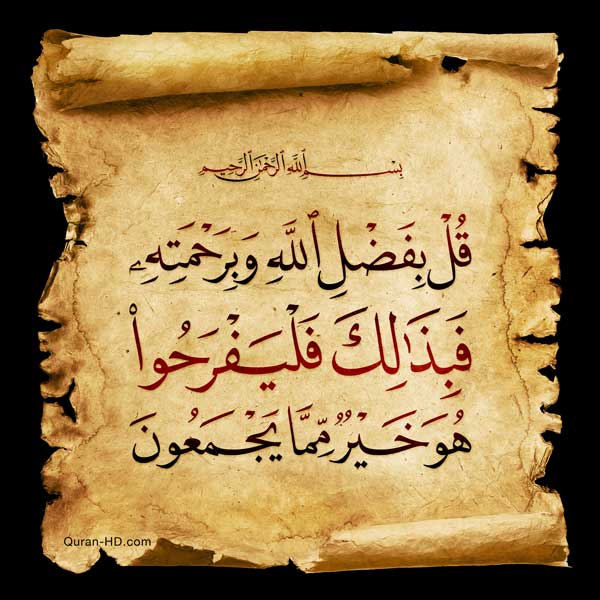 بِسْمِ ٱللَّهِ ٱلرَّحْمَٰنِ ٱلرَّحِيمِ
قُلْ بِفَضْلِ ٱللَّهِ وَبِرَحْمَتِهِۦ
فَبِذَٰلِكَ فَلْيَفْرَحُوا۟
هُوَ خَيْرٌ مِّمَّا يَجْمَعُونَ
Quran-HD.com